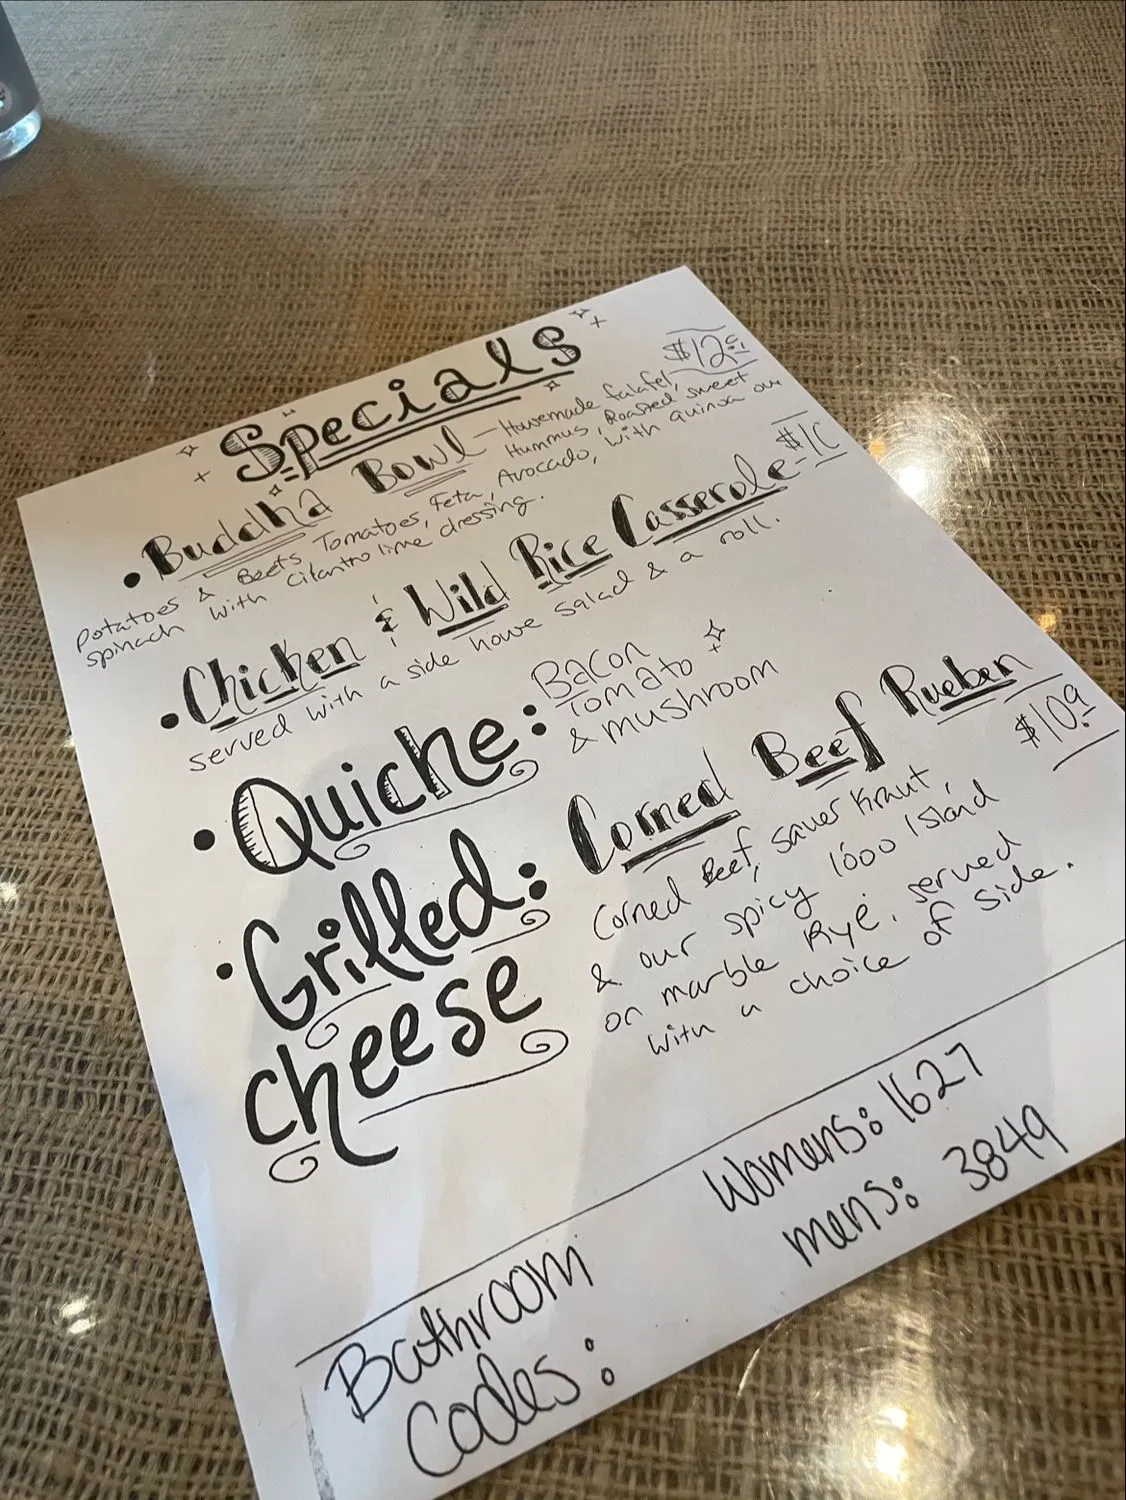 Specials
• Buddha Bowl - Homemade falafel, $12
Hummus, Roasted sweet
potatoes & Beets, Tomatoes, Feta, Avocado, with quinoa
spinach with cilantro lime dressing.
• Chicken & Wild Rice Casserole - $10
served with a side howe salad & a roll.
• Quiche: Bacon
Tomato
& mushroom
• Grilled: Corned Beef Rueben
cheese
$10.9
Corned Beef, sauer Kraut,
& our spicy 1000 Island
on marble Rye. served
with a choice of side.
Bathroom
Codes:
Womens: 1627
mens: 3849